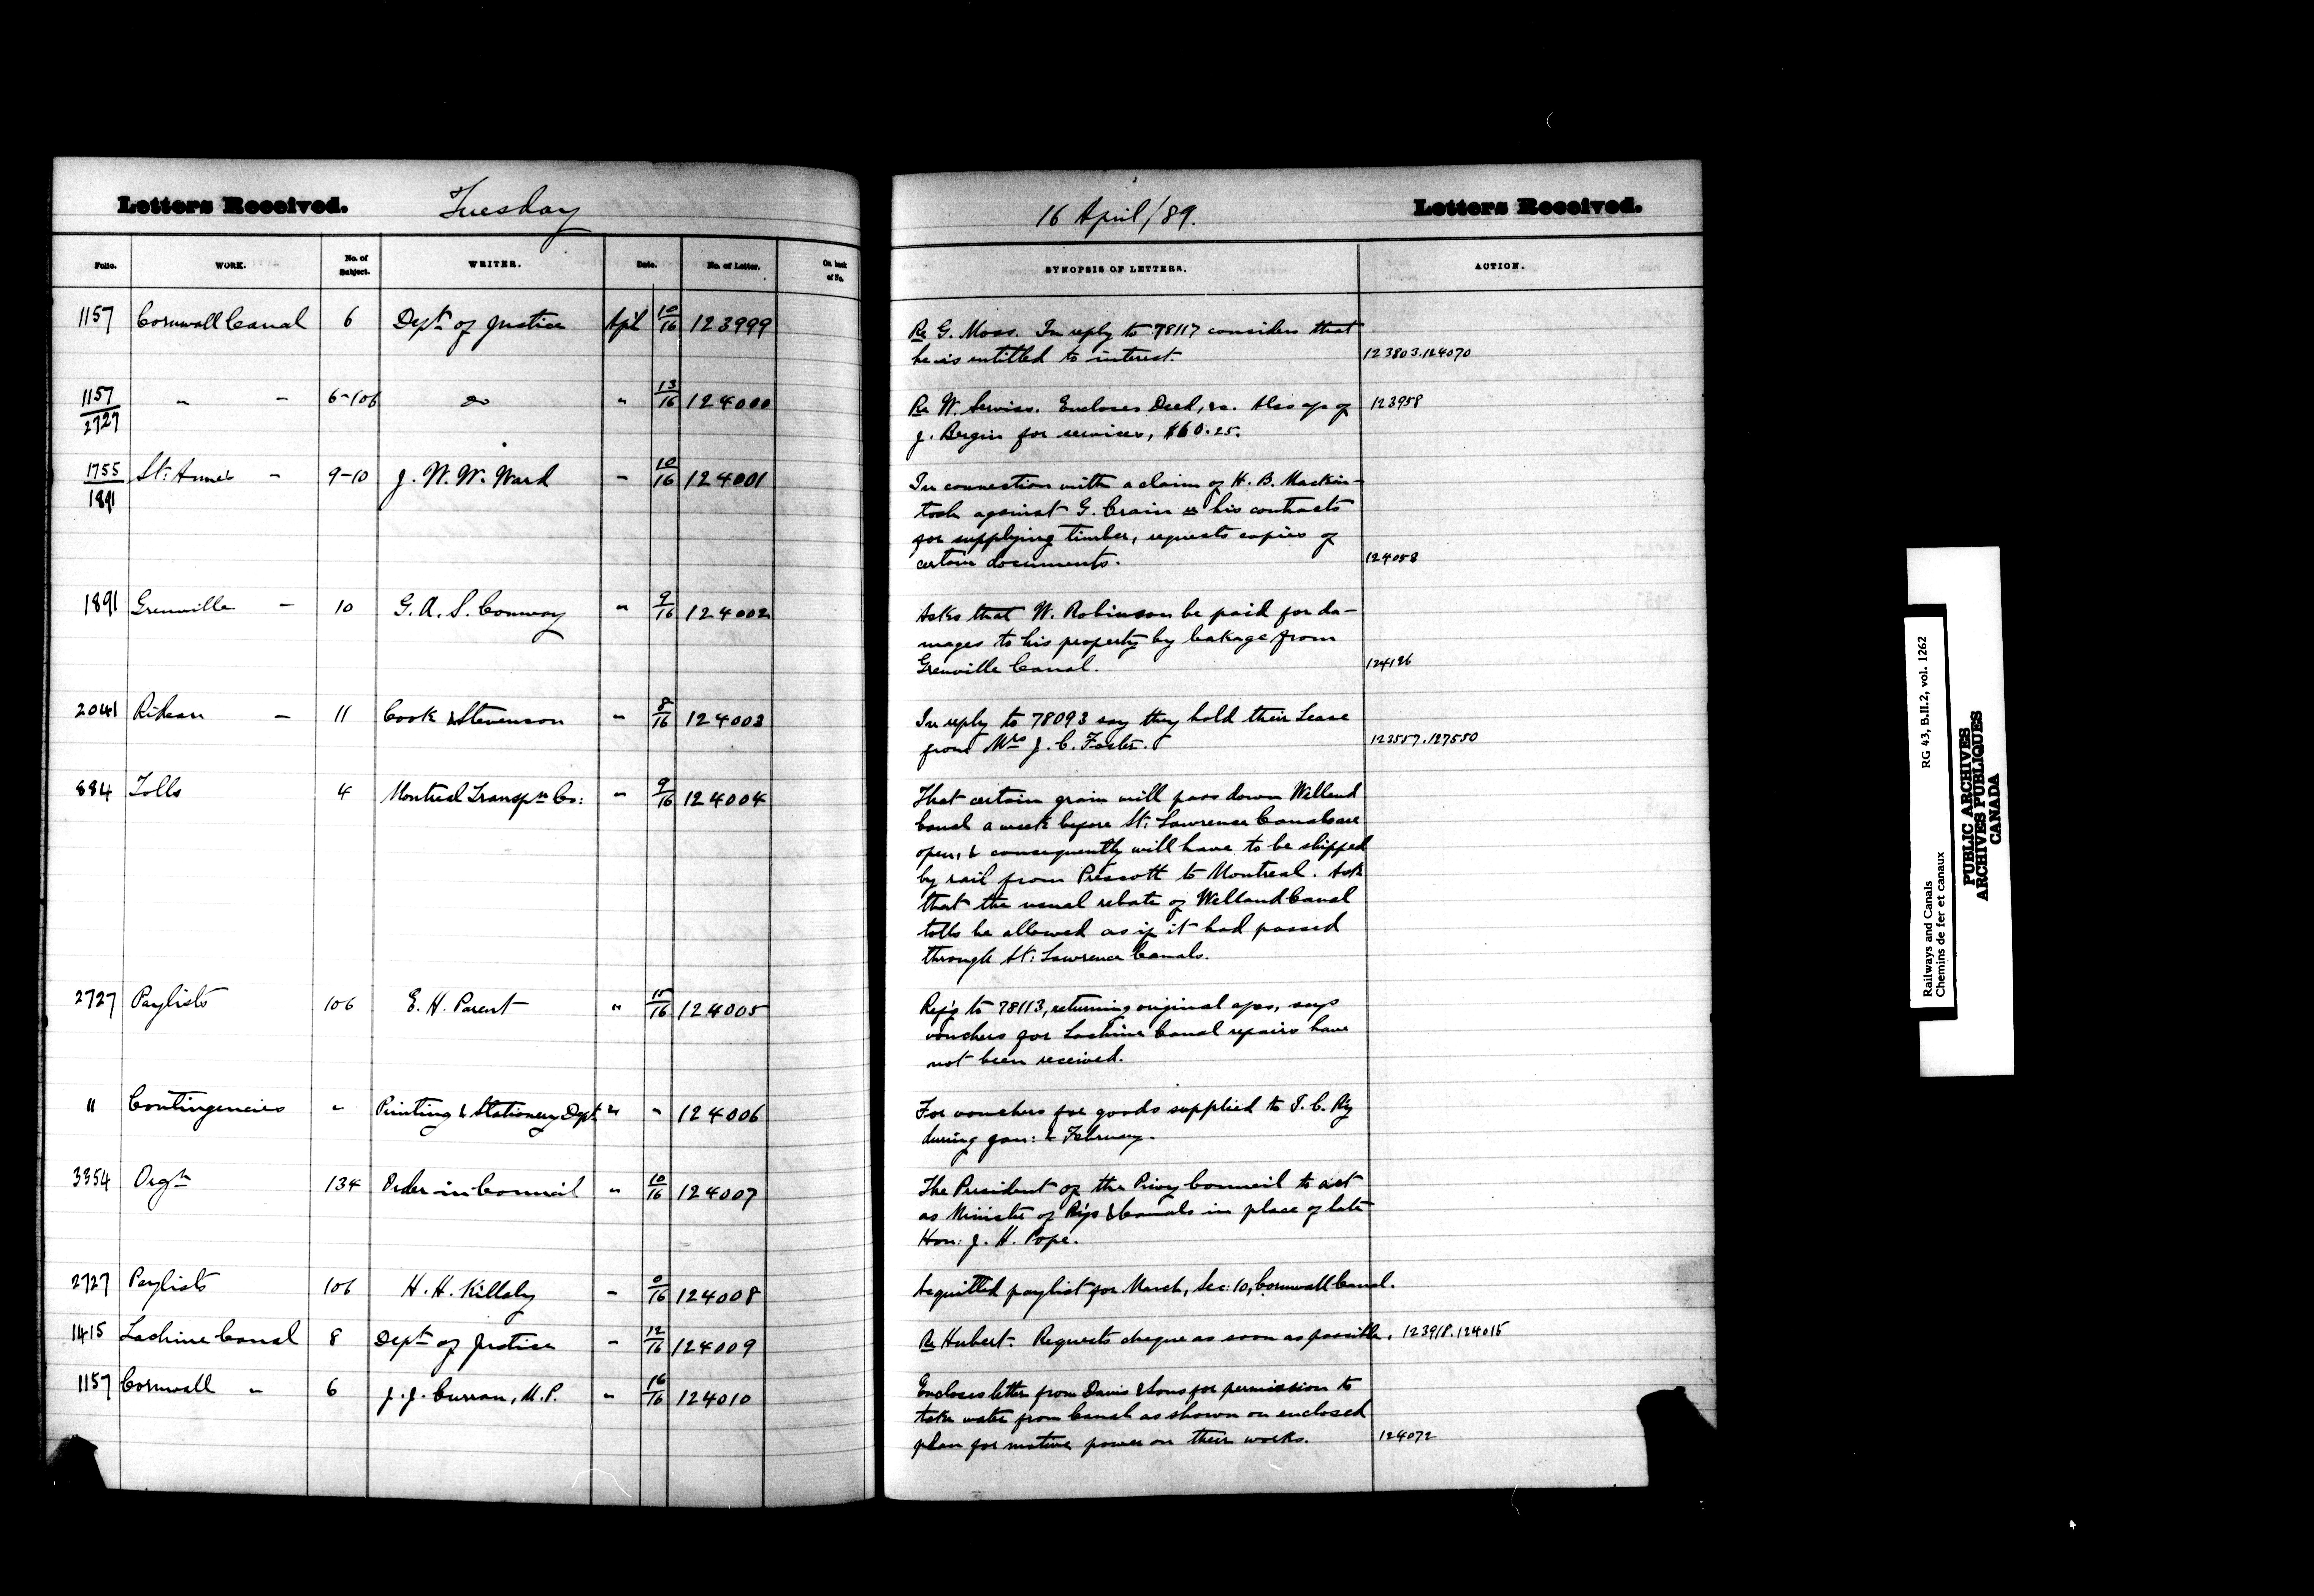 Letters Received.
Tuesday
16 April/89.
Letters Received.
Folio. WORK. No. of Subject. WRITER. Date. No. of Letter. On back of No. SYNOPSIS OF LETTERS. ACTION.
1157 Cornwall Canal 6 Dept. of Justice Apl 10/16 123999
Re G. Moss. In reply to 78117 considers that
he is entitled to interest. 123803.124070
1157/2727 " " 6-106 do " 13/16 124000
Re W. Serviss. Encloses Deed, &c. Also a/c of 123958
J. Bergin for services, $60.25.
1755/1891 St: Anne's " 9-10 J. W. W. Ward " 10/16 124001
In connection with a claim of H. B. Mackin-
tosh against G. Crain re his contracts
for supplying timber, requests copies of
certain documents. 124058
1891 Grenville " 10 G. A. S. Conway " 9/16 124002
Asks that W. Robinson be paid for da-
mages to his property by leakage from
Grenville Canal. 124126
2041 Rideau " 11 Cook & Stevenson " 8/16 124003
In reply to 78093 say they hold their Lease
from Mrs J. C. Foster. 123557.127550
884 Tolls 4 Montreal Transpn Co: " 9/16 124004
That certain grain will pass down Welland
Canal a week before St: Lawrence Canals are
open, & consequently will have to be shipped
by rail from Prescott to Montreal. Ask
that the usual rebate of Welland Canal
tolls be allowed as if it had passed
through St: Lawrence Canals.
2727 Paylists 106 E. H. Parent " 15/16 124005
Rep'g to 78113, returning original a/cs, says
vouchers for Lachine Canal repairs have
not been received.
" Contingencies " Printing & Stationery Dept " " 124006
For vouchers for goods supplied to I. C. Ry
during Jan: & February.
3354 Orgn 134 Order in Council " 10/16 124007
The President of the Privy Council to act
as Minister of Rys & Canals in place of late
Hon: J. H. Pope.
2727 Paylists 106 H. H. Killaly " 0/16 124008
Acquitted paylist for March, Sec: 10, Cornwall Canal.
1415 Lachine Canal 8 Dept of Justice " 12/16 124009
Re Hubert. Requests cheque as soon as possible. 123918.124015
1157 Cornwall " 6 J. J. Curran, M.P. " 16/16 124010
Encloses letter from Davis & Sons for permission to
take water from Canal as shown on enclosed
plan for motive power on their works. 124072
Railways and Canals RG 43, B.II.2, vol. 1262
Chemins de fer et canaux
PUBLIC ARCHIVES
ARCHIVES PUBLIQUES
CANADA